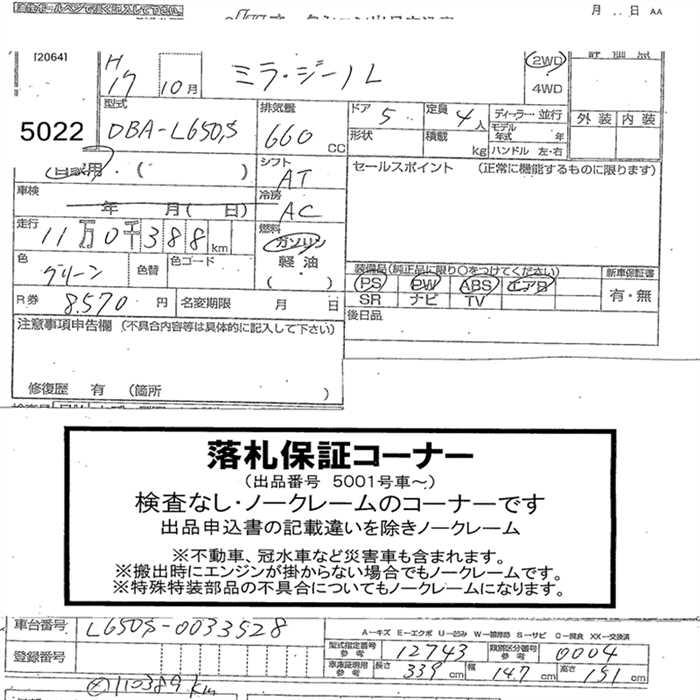 月 日 AA
[2064]
H
17 10月
ミラ・ジーノ L
2WD
4WD
評価点
外装 内装
5022
型式
DBA-L650S
排気量
660
CC
ドア 5
定員 4人
形状
積載 kg
ディーラー・並行
モデル年式 年
ハンドル 左・右
自家用 ( )
シフト
AT
セールスポイント (正常に機能するものに限ります)
車検
年 月( 日)
冷房
AC
走行
11万0千388km
燃料
ガソリン
軽油
( )
色
グリーン
色替
色コード
装備品(純正品に限り○をつけてください)
新車保証書
PS PW ABS エアB
有・無
SR ナビ TV
R券 8.570円
名変期限 月 日
後日品
注意事項申告欄 (不具合内容等は具体的に記入して下さい)
修復歴 有 (箇所 )
落札保証コーナー
(出品番号 5001号車~)
検査なし・ノークレームのコーナーです
出品申込書の記載違いを除きノークレーム
※不動車、冠水車など災害車も含まれます。
※搬出時にエンジンが掛からない場合でもノークレームです。
※特殊特装部品の不具合についてもノークレームになります。
車台番号 L650S-0033528
A-キズ E-エクボ U-凹み W-補修跡 S-サビ C-腐食 XX-交換済
登録番号
型式指定番号 参考 12743
類別区分番号 参考 0004
車庫証明用 参考 長さ 339cm 幅 147cm 高さ 151cm
110389km